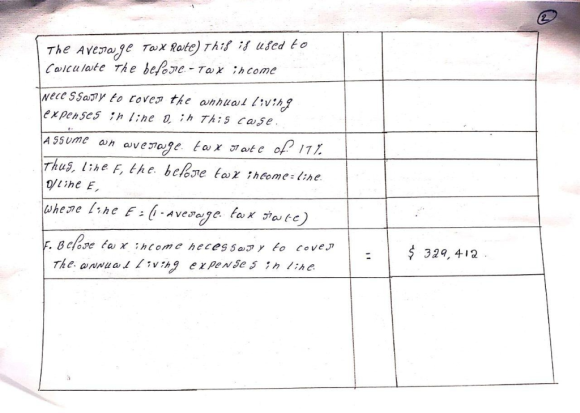 2
The Average Tax Rate) This is used to
Calculate The before - Tax income
Necessary to cover the annual living
expenses in line D, in This case.
Assume an average tax rate of 17%.
Thus, line F, the before tax income = line
D/line E,
Where line E = (1 - Average tax rate)
F. Before tax income necessary to cover = $ 329,412.
The annual living expenses in line